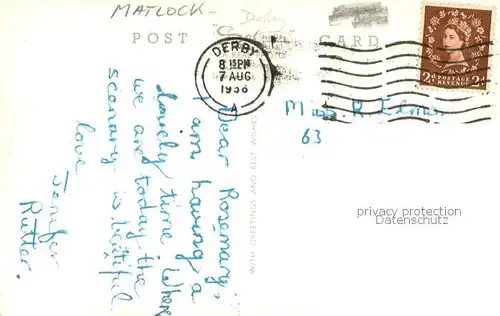 MATLOCK -
Derby
POST CARD
DERBY
8 15PM
7 AUG
1958
A
POSTAGE
REVENUE
2D 2D
Miss. R. Elmer
63
privacy protection
Datenschutz
WITH GREETINGS AND BEST WISHES
Dear Rosemary,
I am having a
lovely time. Where
we are today the
scenary is beautiful
love
Jenifer
Rutter.